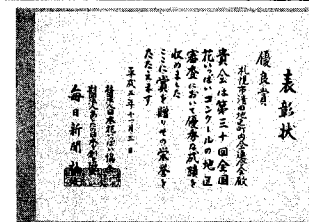 表彰状
優良賞
札幌市清田地区町内会連合会殿
貴会は第三十回全国
花いっぱいコンクールの地区
審査において優秀な成績を
収めました
ここに賞を贈りその栄誉を
たたえます
平成五年十一月三日
毎日新聞社